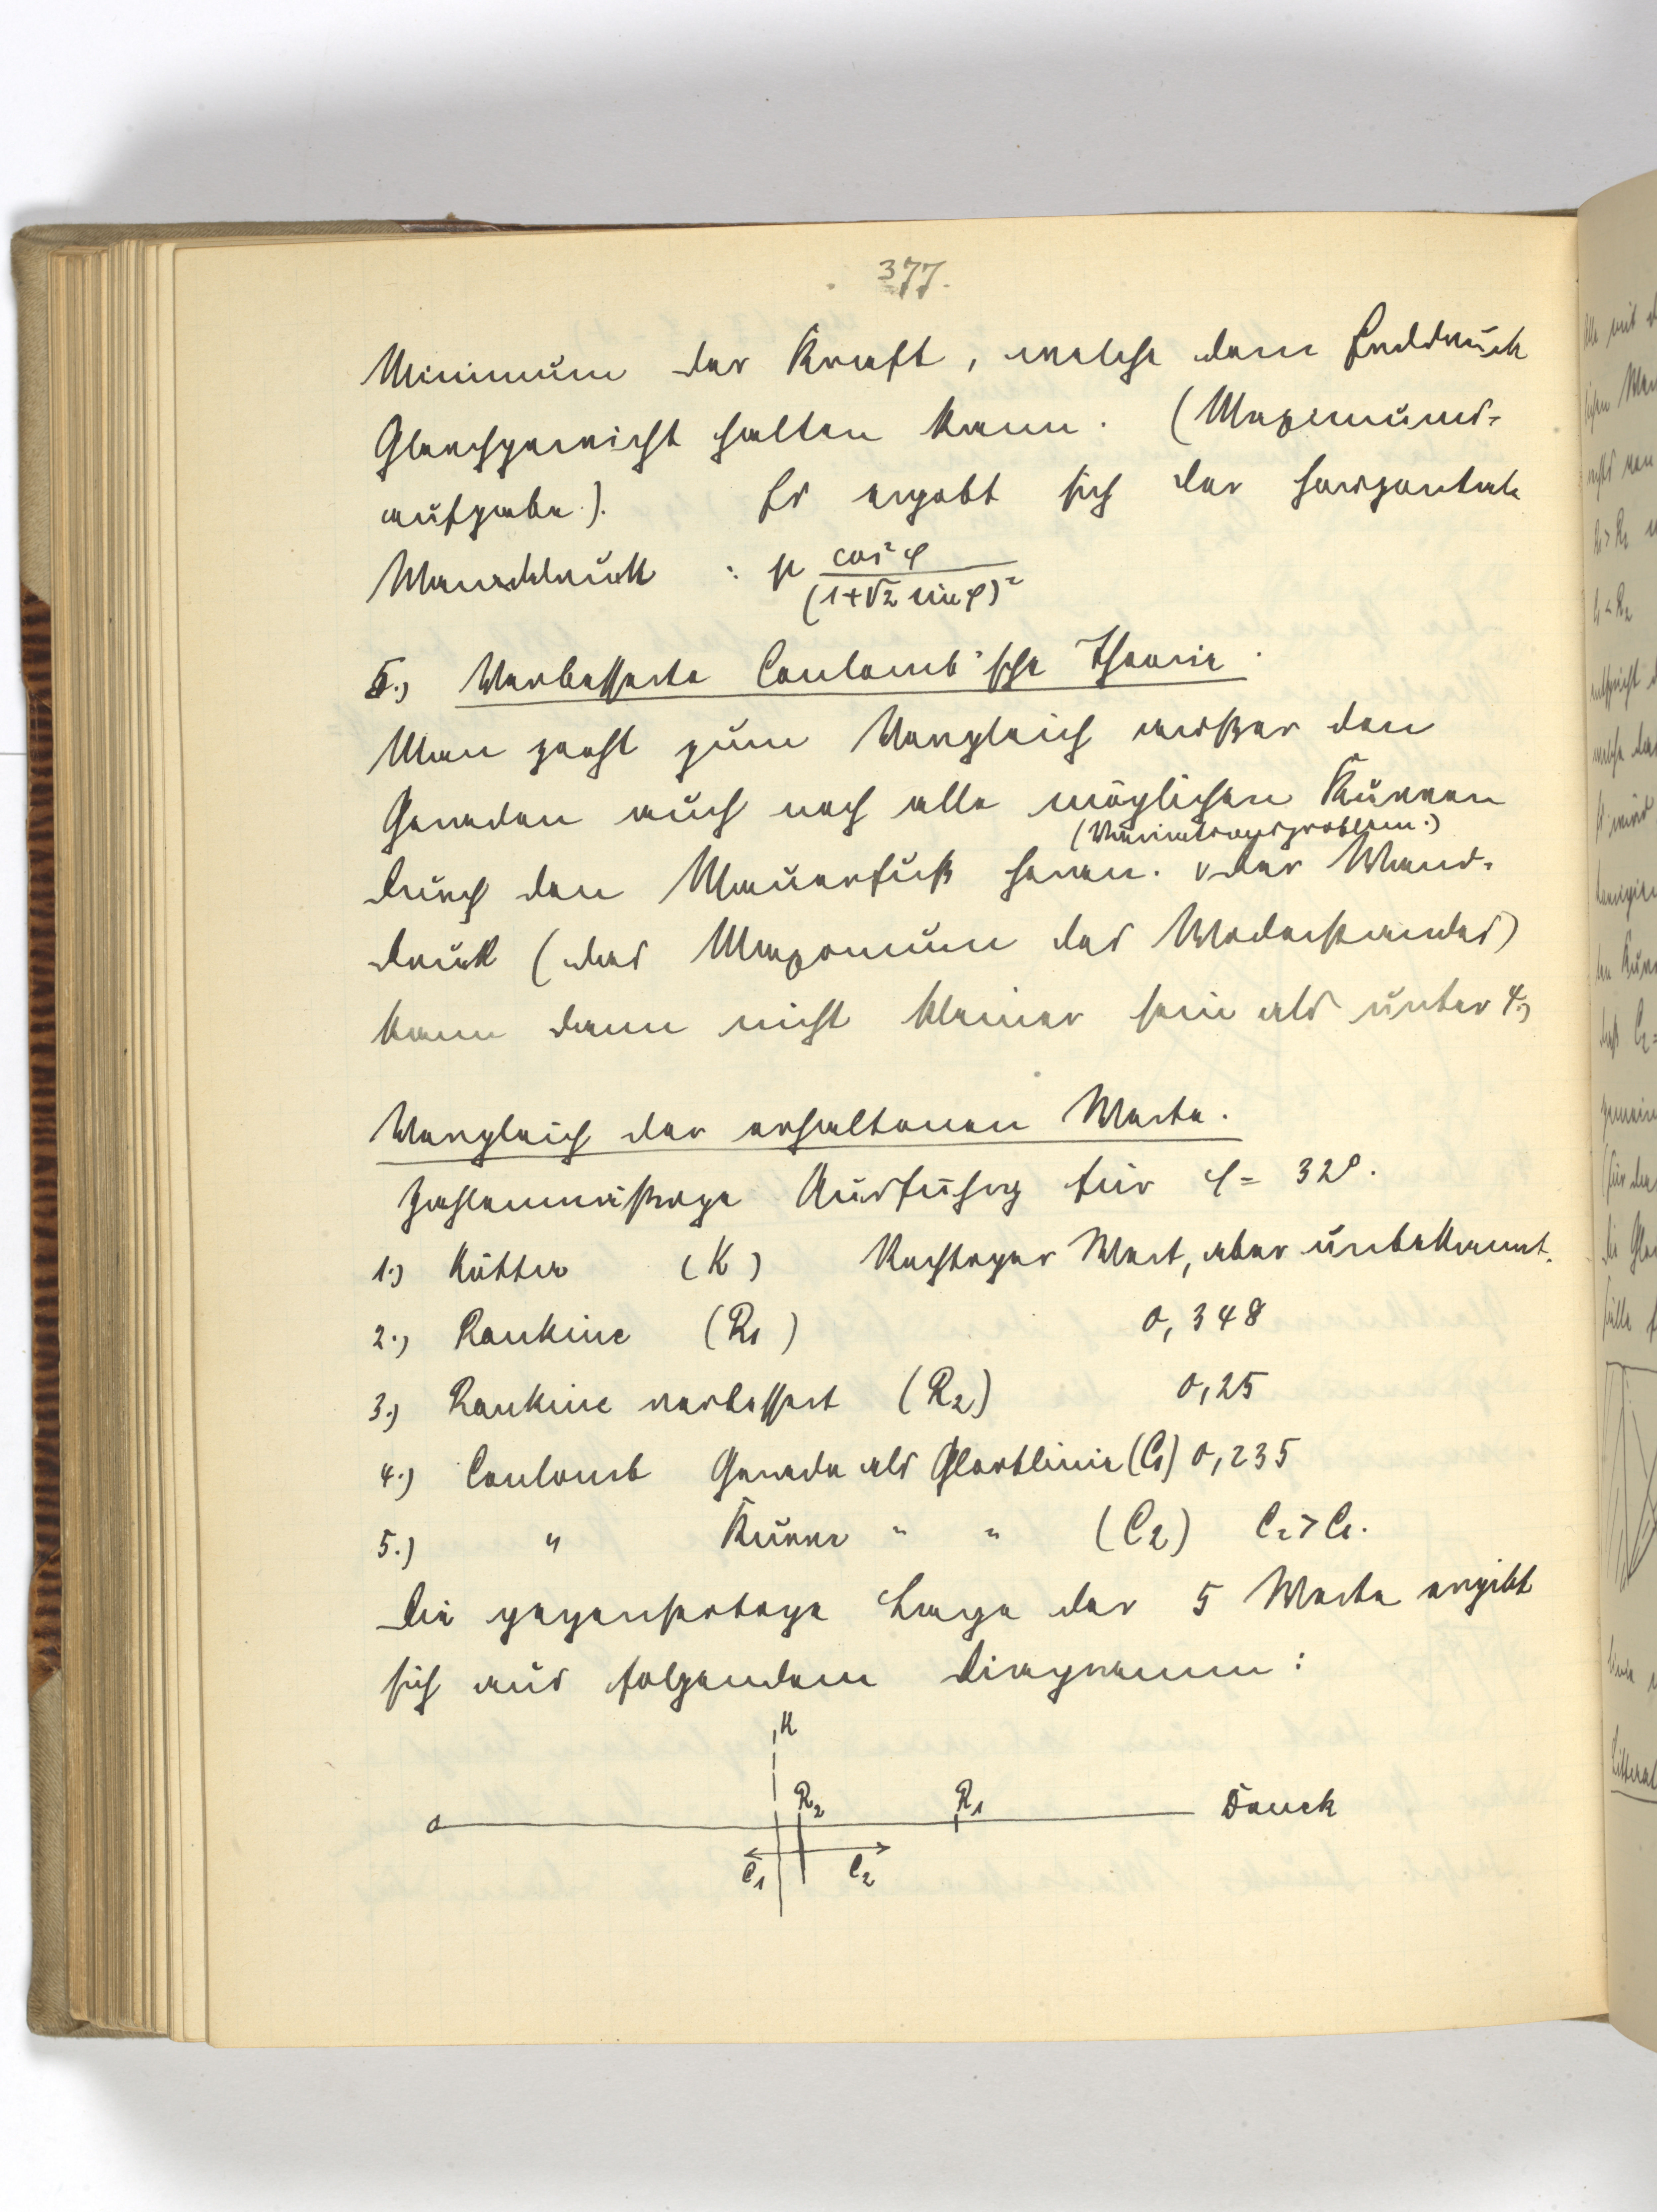 377.
Minimum der Kraft, welche dem Erddruck
Gleichgewicht halten kann. (Maximums-
aufgabe). Es ergibt sich der horizontale
Wanddruck : μ cos²φ / (1+√2 sin φ)²
5.) Verbesserte Coulomb'sche Theorie.
Man zieht zum Vergleich außer den
Geraden auch noch alle möglichen Kurven
(Variationsproblem.)
durch den Mauerfuß heran. Der Wand-
druck (das Maximum des Widerstandes)
kann dann nicht kleiner sein als unter 4.)
Vergleich der erhaltenen Werte.
Zahlenmäßige Ausführg für φ = 32°.
1.) Kötter (K) Richtiger Wert, aber unbekannt.
2.) Rankine (R1) 0,348
3.) Rankine verbessert (R2) 0,25
4.) Coulomb Gerade als Gleitlinie (C1) 0,235
5.) " Kurve " " (C2) C2 > C1.
Die gegenseitige Lage der 5 Werte ergibt
sich aus folgendem Diagramm:
K
R2 R1
0 Druck
C1 C2